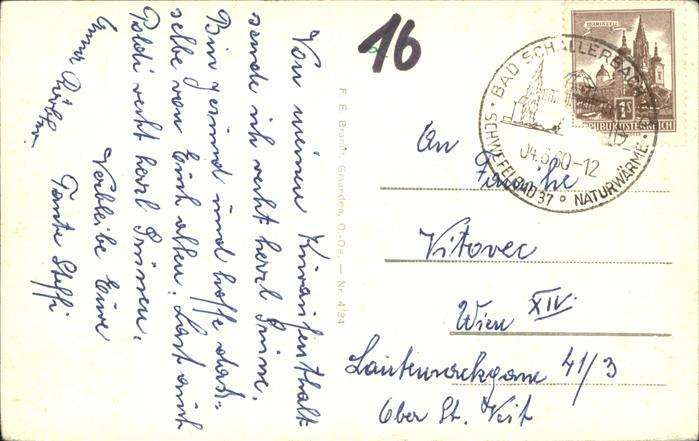 Von meinem Kuraufenthalt
sende ich recht herzl. Grüsse.
Bin gesund und hoffe das=
selbe von Euch allen. Lasst auch
Poldi recht herzl. Grüssen.
Verbleibe Eure
Tante Steffi
16
F. E. Brandt, Gmunden, O.-Oe. — Nr. 4/94
MARIAZELL
1S
REPUBLIK ÖSTERREICH
BAD SCHALLERBACH
04.5.60-12
SCHWEFELBAD 37° NATURWÄRME
An
Familie
Vitovec
Wien XIV.
41/3
Ober St. Veit